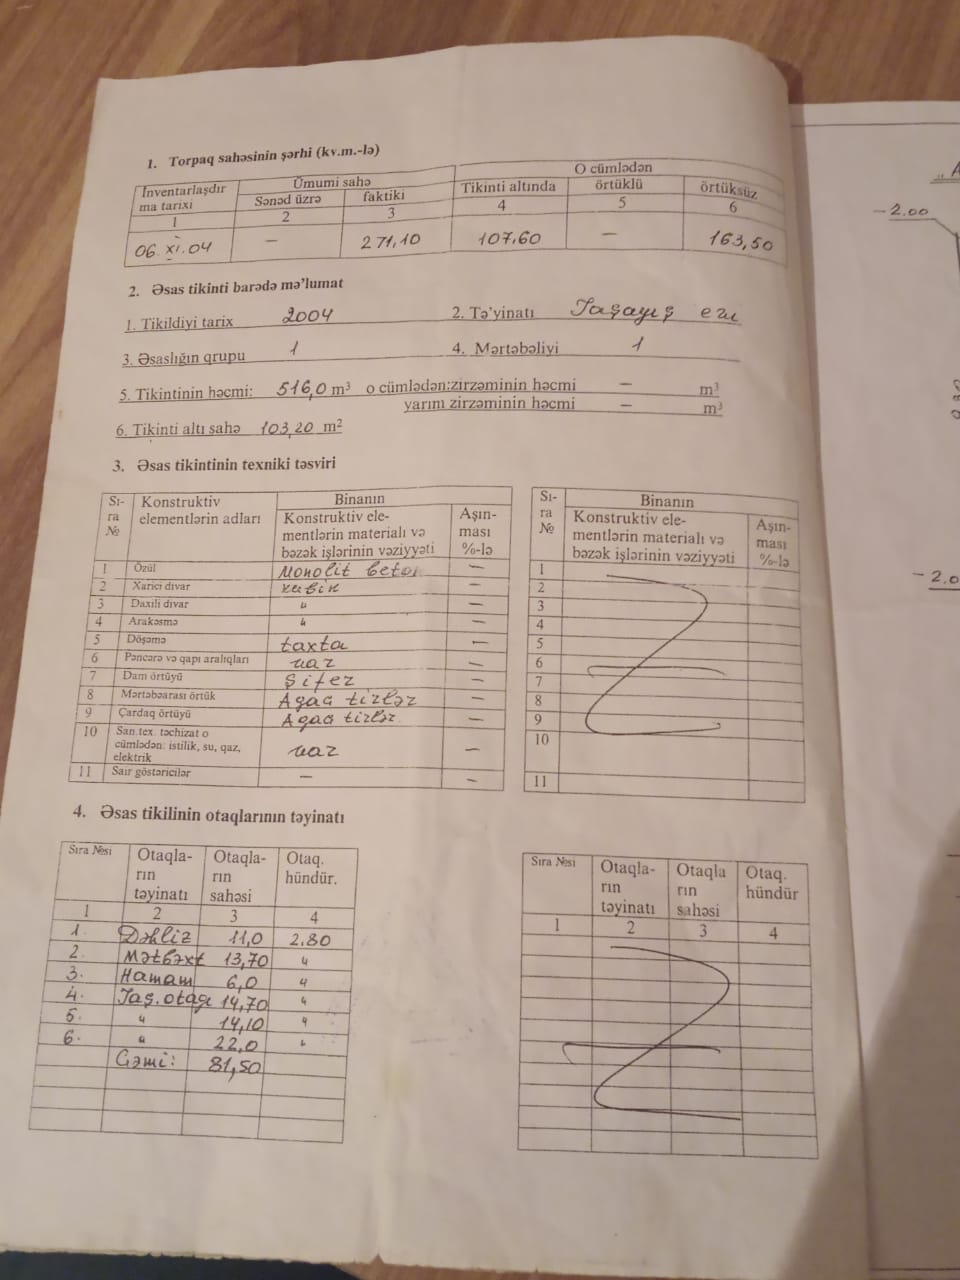 1. Torpaq sahəsinin şərhi (kv.m.-lə)
İnventarlaşdır
ma tarixi
Ümumi sahə
O cümlədən
Sənəd üzrə
faktiki
Tikinti altında
örtüklü
örtüksüz
1 2 3 4 5 6
06.XI.04 — 271,10 107,60 — 163,50
2. Əsas tikinti barədə mə'lumat
1. Tikildiyi tarix 2004 2. Tə'yinatı Yaşayış evi
3. Əsaslığın qrupu 1 4. Mərtəbəliyi 1
5. Tikintinin həcmi: 516,0 m³ o cümlədən:zirzəminin həcmi — m³
yarım zirzəminin həcmi — m³
6. Tikinti altı sahə 103,20 m²
3. Əsas tikintinin texniki təsviri
Sı-
ra
№
Konstruktiv
elementlərin adları
Binanın
Konstruktiv ele-
mentlərin materialı və
bəzək işlərinin vəziyyəti
Aşın-
ması
%-lə
1 Özül Monolit beton —
2 Xarici divar kubik —
3 Daxili divar " —
4 Arakəsmə " —
5 Döşəmə taxta —
6 Pəncərə və qapı aralıqları var —
7 Dam örtüyü Şifer —
8 Mərtəbəarası örtük Ağac tirlər —
9 Çardaq örtüyü Ağac tirlər —
10 San.tex. təchizat o
cümlədən: istilik, su, qaz,
elektrik
var —
11 Sair göstəricilər — —
Sı-
ra
№
Binanın
Konstruktiv ele-
mentlərin materialı və
bəzək işlərinin vəziyyəti
Aşın-
ması
%-lə
1
2
3
4
5
6
7
8
9
10
11
4. Əsas tikilinin otaqlarının təyinatı
Sıra №si
Otaqla-
rın
təyinatı
Otaqla-
rın
sahəsi
Otaq.
hündür.
1 2 3 4
1. Dəhliz 11,0 2.80
2. Mətbəxt 13,70 "
3. Hamam 6,0 "
4. Yaş.otağı 14,70 "
5. " 14,10 "
6. " 22,0 "
Cəmi: 81,50
Sıra №si
Otaqla-
rın
təyinatı
Otaqla
rın
sahəsi
Otaq.
hündür
1 2 3 4
„ A
- 2.00
- 2.0